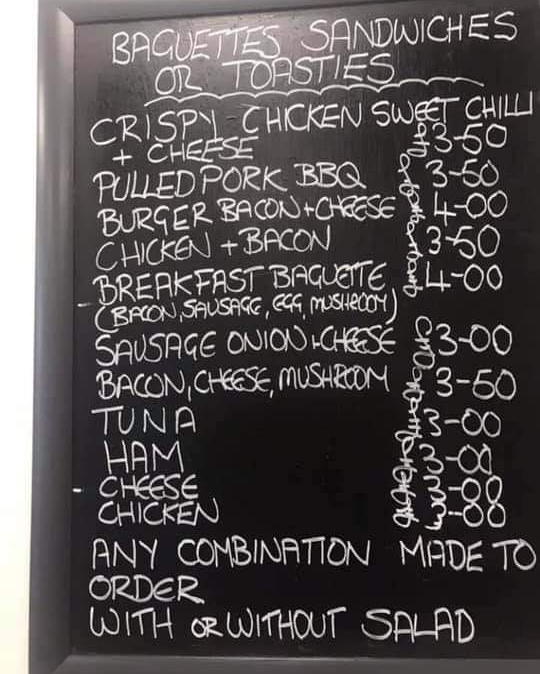 BAGUETTES SANDWICHES
OR TOASTIES
CRISPY CHICKEN SWEET CHILLI
+ CHEESE 3-50
PULLED PORK BBQ 3-50
BURGER BACON + CHEESE 4-00
CHICKEN + BACON 3-50
BREAKFAST BAGUETTE 4-00
(BACON, SAUSAGE, EGG, MUSHROOM)
SAUSAGE ONION + CHEESE 3-00
BACON, CHEESE, MUSHROOM 3-50
TUNA 3-00
HAM 3-00
CHEESE 3-00
CHICKEN 3-00
ANY COMBINATION MADE TO
ORDER
WITH OR WITHOUT SALAD